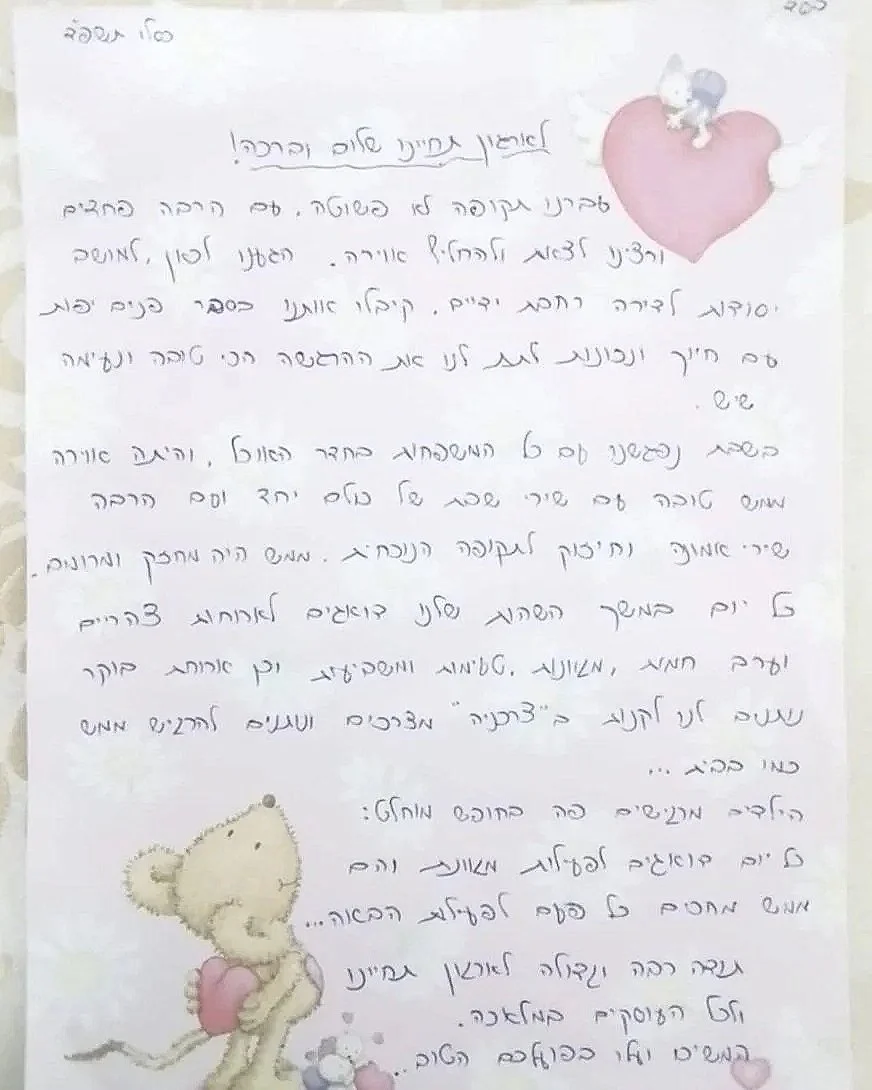 בסד
כסלו תשפ"ד
לארגון תחיינו שלום וברכה!
עברנו תקופה לא פשוטה, עם הרבה פחדים
ורצינו לצאת ולהחליף אווירה. הגענו לכאן, למושב
יסודות לדירה רחבת ידיים. קיבלו אותנו בסבר פנים יפות
עם חיוך ונכונות לתת לנו את ההרגשה הכי טובה ונעימה
שיש.
בשבת נפגשנו עם כל המשפחות בחדר האוכל, והיתה אווירה
ממש טובה עם שירי שבת של כולם יחד ועם הרבה
שירי אמונה וחיזוק לתקופה הנוכחית. ממש היה מחזק ומרומם.
כל יום במשך השהות שלנו דואגים לארוחות צהריים
וערב חמות, מגוונות, טעימות ומשביעות וכן ארוחת בוקר
נותנים לנו לקנות ב"צרכניה" מצרכים ונותנים להרגיש ממש
כמו בבית...
הילדים מרגישים פה בחופש מוחלט:
כל יום דואגים לפעילות מגוונת והם
ממש מחכים כל פעם לפעילות הבאה...
תודה רבה וגדולה לארגון תחיינו
ולכל העוסקים במלאכה.
המשיכו ועלו בפועלכם הטוב..